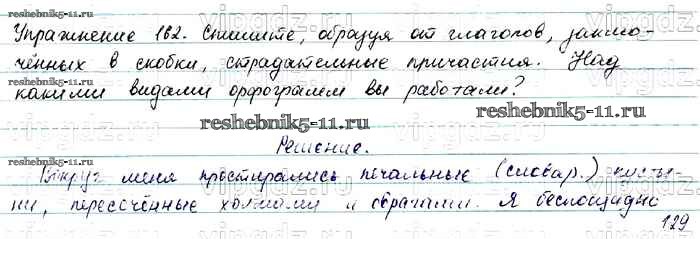 Упражнение 162. Спишите, образуя от глаголов, заклю-
чённых в скобки, страдательные причастия. Над
какими видами орфограмм вы работали?
reshebnik5-11.ru
reshebnik5-11.ru
Решение.
Вокруг меня простирались печальные (словар.) пусты-
ни, пересечённые холмами и оврагами. Я беспощадно
129